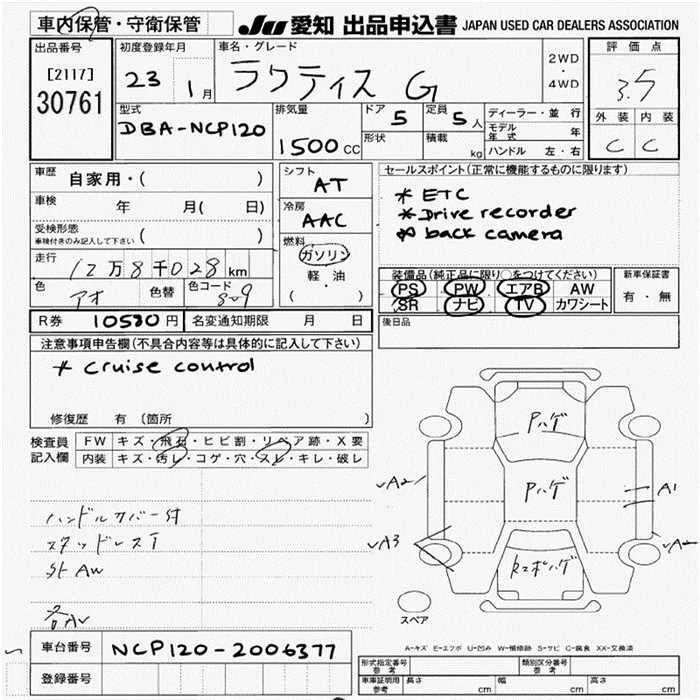 車内保管・守衛保管
JU 愛知 出品申込書 JAPAN USED CAR DEALERS ASSOCIATION
出品番号
[2117]
30761
初度登録年月
23 1月
車名・グレード
ラクティス G
2WD
・
4WD
評価点
3.5
外装 内装
C C
型式
DBA-NCP120
排気量
1500 CC
ドア 5
定員 5人
形状
積載 kg
ディーラー・並行
モデル年式 年
ハンドル 左・右
車歴 自家用・( )
車検 年 月( 日)
受検形態
車検付きのみ記入して下さい ( )
走行 12万8千028km
色 アオ 色替 色コード 8
シフト
AT
冷房
AAC
燃料
ガソリン
軽・油
( )
セールスポイント(正常に機能するものに限ります)
* ETC
* Drive recorder
* back camera
装備品(純正品に限り○をつけてください)
PS PW エアB AW
SR ナビ TV カワシート
新車保証書
有・無
R券 10580円 名変通知期限 月 日
後日品
注意事項申告欄(不具合内容等は具体的に記入して下さい)
* cruise control
修復歴 有 (箇所 )
検査員
記入欄
FW キズ・飛石・ヒビ割・リペア跡・X要
内装 キズ・汚レ・コゲ・穴・スレ・キレ・破レ
ハンドルカバー付
スタッドレスT
外AW
Pハゲ
Pハゲ
A2
A3
A1
A2
スペア
A-キズ E-エクボ U-凹み W-補修跡 S-サビ C-腐食 XX-交換済
車台番号 NCP120-2006377
登録番号
型式指定番号
参考
類別区分番号
参考
車庫証明用
参考
長さ cm 幅 cm 高さ cm